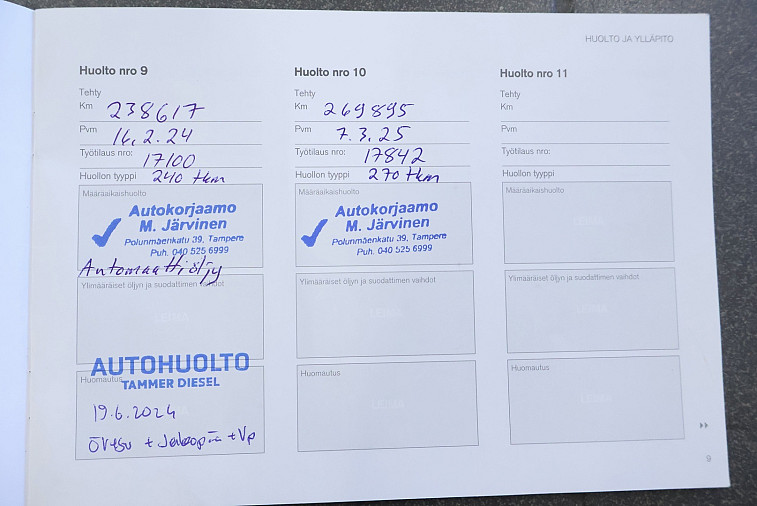 HUOLTO JA YLLÄPITO
Huolto nro 9
Tehty
Km 238617
Pvm 16.2.24
Työtilaus nro: 17100
Huollon tyyppi 240 tkm
Määräaikaishuolto
Autokorjaamo
M. Järvinen
Polunmäenkatu 39, Tampere
Puh. 040 525 6999
Automaattiöljy
Ylimääräiset öljyn ja suodattimen vaihdot
LEIMA
AUTOHUOLTO
TAMMER DIESEL
Huomautus
19.6.2024
+ Jakopää + Vp
Huolto nro 10
Tehty
Km 269895
Pvm 7.3.25
Työtilaus nro: 17842
Huollon tyyppi 270 tkm
Määräaikaishuolto
Autokorjaamo
M. Järvinen
Polunmäenkatu 39, Tampere
Puh. 040 525 6999
Ylimääräiset öljyn ja suodattimen vaihdot
LEIMA
Huomautus
LEIMA
Huolto nro 11
Tehty
Km
Pvm
Työtilaus nro:
Huollon tyyppi
Määräaikaishuolto
Ylimääräiset öljyn ja suodattimen vaihdot
LEIMA
Huomautus
LEIMA
9